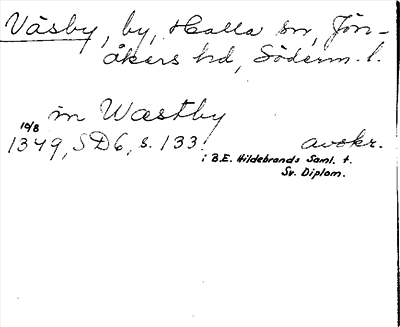 Väsby, by, Halla sn, Jön-
åkers hd, Söderm. l.
in Wæstby
10/8
1349, SD6, s. 133. avskr.
i B.E. Hildebrands Saml. t.
Sv. Diplom.